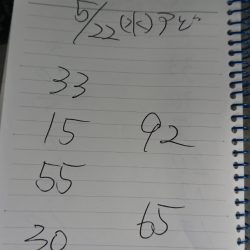 5/22
33
15 92
55
65
30